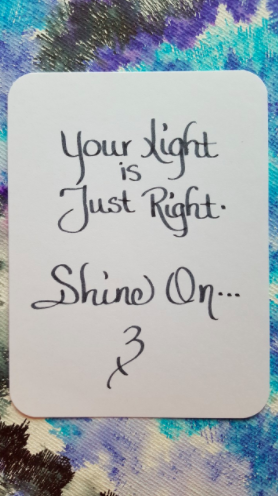 Your Light
is
Just Right.
Shine On...